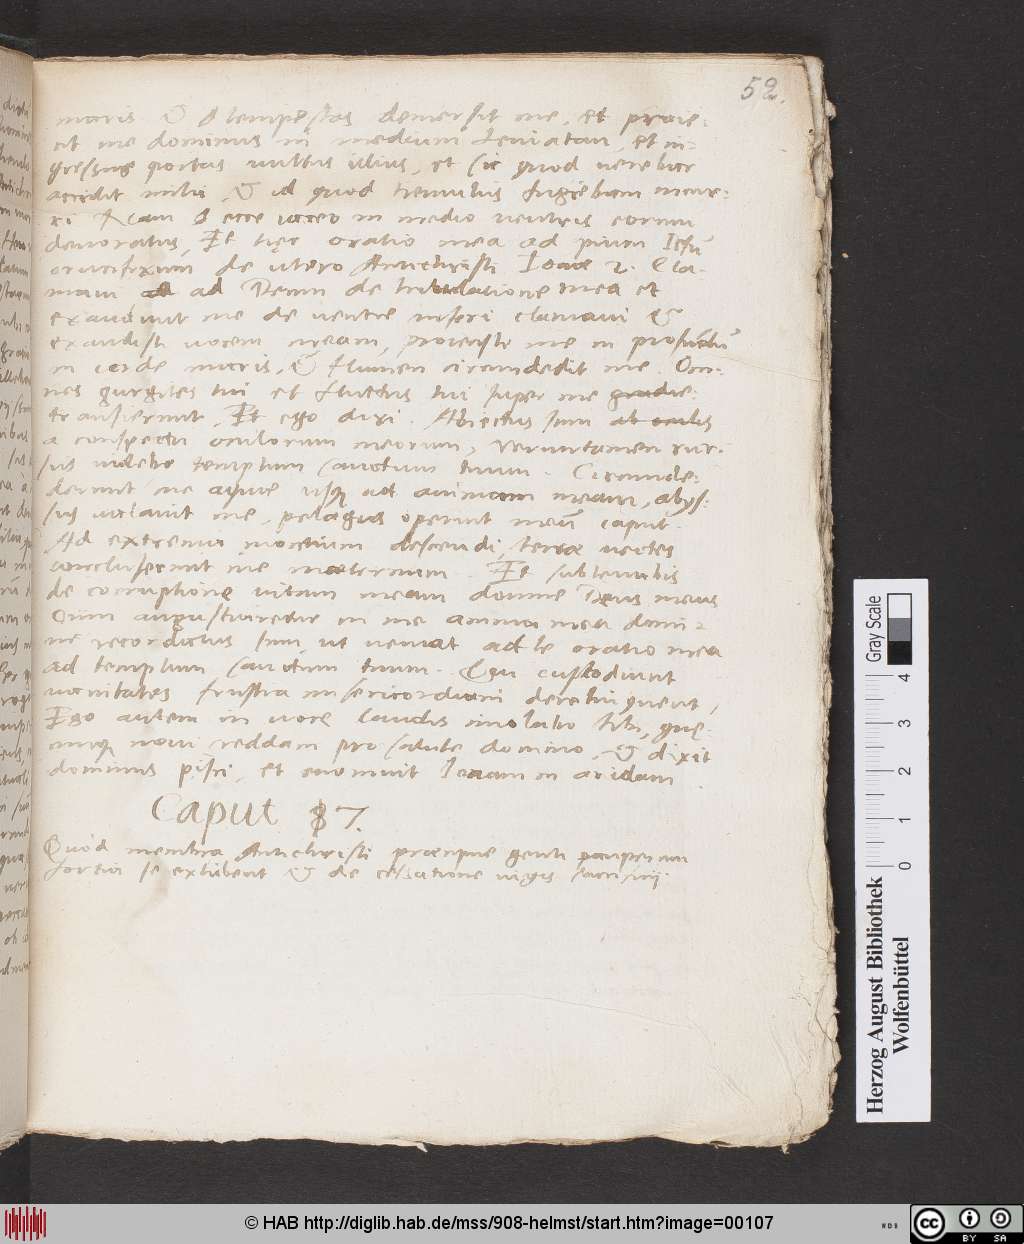 52.
maris. Et tempestas demersit me, et proie-
cit me dominus in medium Leviatan, et in-
gressus portas vultus illius, et sic quod verebar
accidit mihi, Et id quod tremulus fugiebam incur-
ri Nam ecce iaceo in medio ventris eorum
devoratus, Et hęc oratio mea ad pium Iesū
crucifixum de utero Antichristi Ionae 2. Cla-
mavi ad Deum de tribulatione mea et
exaudivit me de ventre inferi clamavi Et
exaudisti vocem meam, proiecisti me in profundū
in corde maris, Et flumen circumdedit me. Om-
nes gurgites tui et fluctus tui super me
transierunt, Et ego dixi. Abiectus sum ab oculis
a conspectu oculorum meorum, veruntamen rur-
sus videbo templum sanctum tuum. Circumde-
derunt me aquae usque ad animam meam, abys-
sus vallavit me, pelagus operuit meū caput.
Ad extrema montium descendi, terrae vectes
concluserunt me in aeternum. Et sublevabis
de corruptione vitam meam domine Deus meus
Cum angustiaretur in me anima mea domi-
ni recordatus sum, ut veniat ad te oratio mea
ad templum sanctum tuum. Qui custodiunt
vanitates frustra misericordiam derelinquent,
Ego autem in voce laudis imolabo tibi, quę-
cunque vovi reddam pro salute domino, Et dixit
dominus pisci, et evomuit Ionam in aridam
Caput 7.
Quod membra Antichristi praecipue genti pauperum
fortia se exhibent Et de cessatione iugis sacrificij.
Gray Scale
0 1 2 3 4
Herzog August Bibliothek
Wolfenbüttel
© HAB http://diglib.hab.de/mss/908-helmst/start.htm?image=00107
WDB
cc BY SA